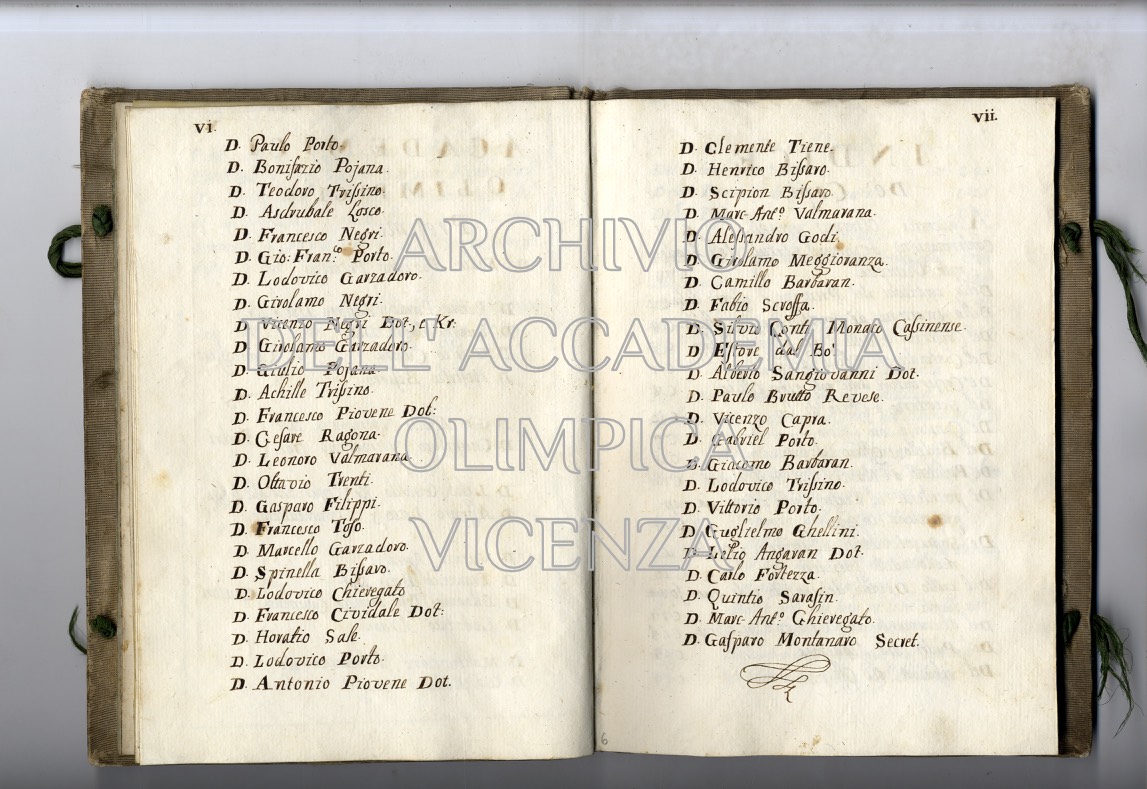 vi.
D. Paulo Porto.
D. Bonifazio Pojana.
D. Teodoro Trißino.
D. Asdrubale Losco.
D. Francesco Negri.
D. Gio: Fran.co Porto.
D. Lodovico Garzadoro.
D. Girolamo Negri.
D. Vicenzo Negri Dot., e Kr:
D. Girolamo Garzadoro.
D. Giulio Pojana.
D. Achille Trißino.
D. Francesco Piovene Dot:
D. Cesare Ragona.
D. Leonoro Valmarana.
D. Ottavio Trenti.
D. Gasparo Filippi.
D. Francesco Toso.
D. Marcello Garzadoro.
D. Spinella Bißaro.
D. Lodovico Chieregato
D. Francesco Cividale Dot:
D. Horatio Sale.
D. Lodovico Porto.
D. Antonio Piovene Dot.
vii.
D. Clemente Tiene.
D. Henrico Bißaro.
D. Scipion Bißaro.
D. Marc-Ant.o Valmarana.
D. Aleßandro Godi.
D. Girolamo Meggioranza.
D. Camillo Barbaran.
D. Fabio Scroffa.
D. Silvio Conti Monaco Caßinense.
D. Ettore dal Bo'.
D. Alberto Sangiovanni Dot.
D. Paulo Brutto Revese.
D. Vicenzo Capra.
D. Gabriel Porto.
D. Giacomo Barbaran.
D. Lodovico Trißino.
D. Vittorio Porto.
D. Guglielmo Ghellini.
D. Lelio Angaran Dot.
D. Carlo Fortezza.
D. Quintio Sarasin.
D. Marc-Ant.o Chieregato.
D. Gasparo Montanaro Secret.
6
ARCHIVIO
DELL'ACCADEMIA
OLIMPICA
VICENZA